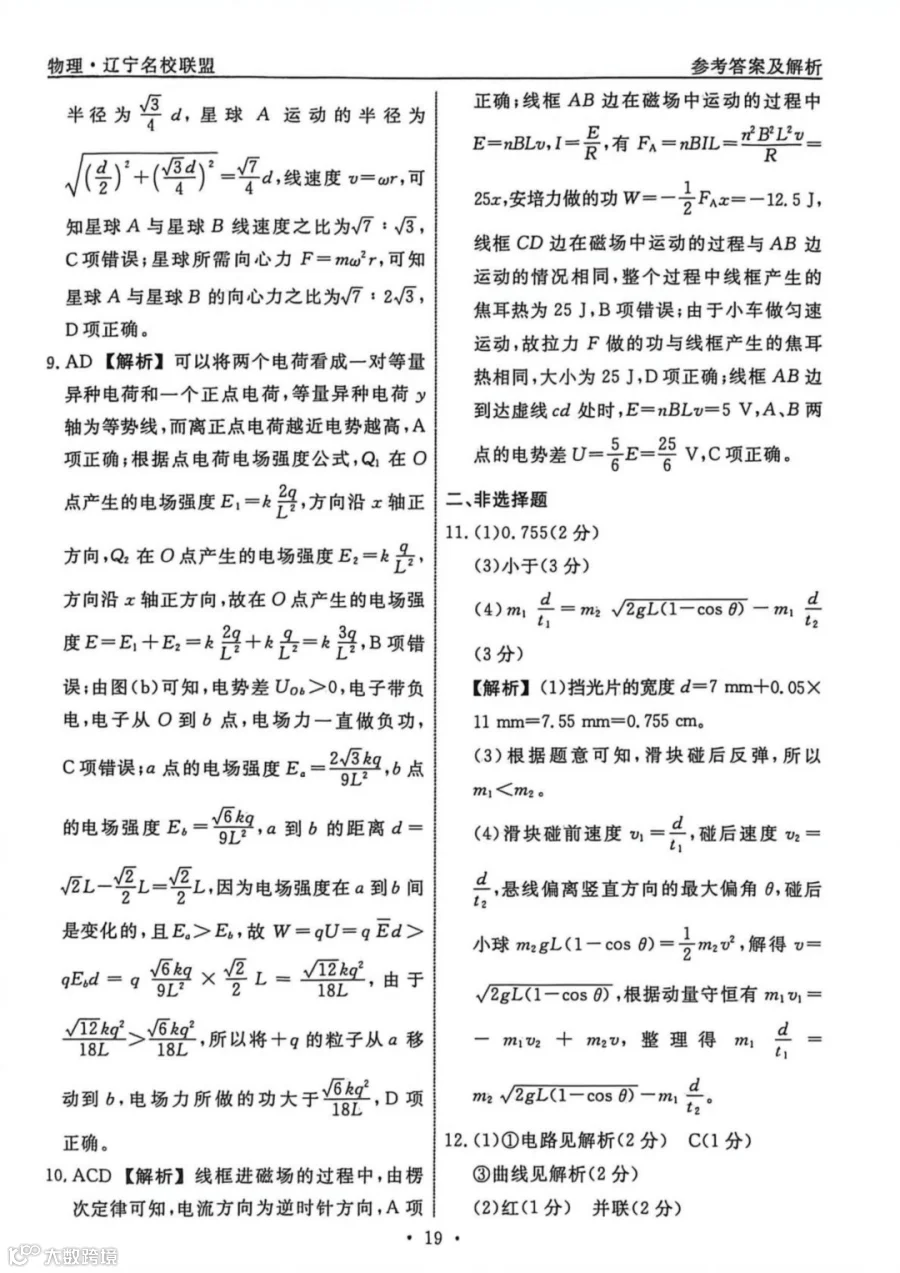 物理·辽宁名校联盟
参考答案及解析
半径为 $\frac{\sqrt{3}}{4}d$,星球 A 运动的半径为
$\sqrt{\left(\frac{d}{2}\right)^2+\left(\frac{\sqrt{3}d}{4}\right)^2}=\frac{\sqrt{7}}{4}d$,线速度 $v=\omega r$,可
知星球 A 与星球 B 线速度之比为$\sqrt{7}:\sqrt{3}$,
C项错误;星球所需向心力 $F=m\omega^2r$,可知
星球 A 与星球 B 的向心力之比为$\sqrt{7}:2\sqrt{3}$,
D项正确。
9. AD 【解析】可以将两个电荷看成一对等量
异种电荷和一个正点电荷,等量异种电荷 y
轴为等势线,而离正点电荷越近电势越高,A
项正确;根据点电荷电场强度公式,$Q_1$ 在 O
点产生的电场强度 $E_1=k\frac{2q}{L^2}$,方向沿 x 轴正
方向,$Q_2$ 在 O 点产生的电场强度 $E_2=k\frac{q}{L^2}$,
方向沿 x 轴正方向,故在 O 点产生的电场强
度 $E=E_1+E_2=k\frac{2q}{L^2}+k\frac{q}{L^2}=k\frac{3q}{L^2}$,B项错
误;由图(b)可知,电势差 $U_{Ob}>0$,电子带负
电,电子从 O 到 b 点,电场力一直做负功,
C项错误;a 点的电场强度 $E_a=\frac{2\sqrt{3}kq}{9L^2}$,b 点
的电场强度 $E_b=\frac{\sqrt{6}kq}{9L^2}$,a 到 b 的距离 $d=$
$\sqrt{2}L-\frac{\sqrt{2}}{2}L=\frac{\sqrt{2}}{2}L$,因为电场强度在 a 到 b 间
是变化的,且 $E_a>E_b$,故 $W=qU=q\overline{E}d>$
$qE_bd=q\frac{\sqrt{6}kq}{9L^2}\times\frac{\sqrt{2}}{2}L=\frac{\sqrt{12}kq^2}{18L}$,由于
$\frac{\sqrt{12}kq^2}{18L}>\frac{\sqrt{6}kq^2}{18L}$,所以将+q 的粒子从 a 移
动到 b,电场力所做的功大于$\frac{\sqrt{6}kq^2}{18L}$,D项
正确。
10. ACD 【解析】线框进磁场的过程中,由楞
次定律可知,电流方向为逆时针方向,A项
正确;线框 AB 边在磁场中运动的过程中
$E=nBLv$,$I=\frac{E}{R}$,有 $F_A=nBIL=\frac{n^2B^2L^2v}{R}=$
25x,安培力做的功 $W=-\frac{1}{2}F_Ax=-12.5$ J,
线框 CD 边在磁场中运动的过程与 AB 边
运动的情况相同,整个过程中线框产生的
焦耳热为 25 J,B项错误;由于小车做匀速
运动,故拉力 F 做的功与线框产生的焦耳
热相同,大小为 25 J,D项正确;线框 AB 边
到达虚线 cd 处时,$E=nBLv=5$ V,A、B 两
点的电势差 $U=\frac{5}{6}E=\frac{25}{6}$ V,C项正确。
二、非选择题
11. (1)0.755(2 分)
(3)小于(3 分)
(4)$m_1\frac{d}{t_1}=m_2\sqrt{2gL(1-\cos\theta)}-m_1\frac{d}{t_2}$
(3 分)
【解析】(1)挡光片的宽度 d=7 mm+0.05×
11 mm=7.55 mm=0.755 cm。
(3)根据题意可知,滑块碰后反弹,所以
$m_1<m_2$。
(4)滑块碰前速度 $v_1=\frac{d}{t_1}$,碰后速度 $v_2=$
$\frac{d}{t_2}$,悬线偏离竖直方向的最大偏角 θ,碰后
小球 $m_2gL(1-\cos\theta)=\frac{1}{2}m_2v^2$,解得 $v=$
$\sqrt{2gL(1-\cos\theta)}$,根据动量守恒有 $m_1v_1=$
$-m_1v_2+m_2v$,整理得 $m_1\frac{d}{t_1}=$
$m_2\sqrt{2gL(1-\cos\theta)}-m_1\frac{d}{t_2}$。
12. (1)①电路见解析(2 分) C(1 分)
③曲线见解析(2 分)
(2)红(1 分) 并联(2 分)
· 19 ·
大数跨境